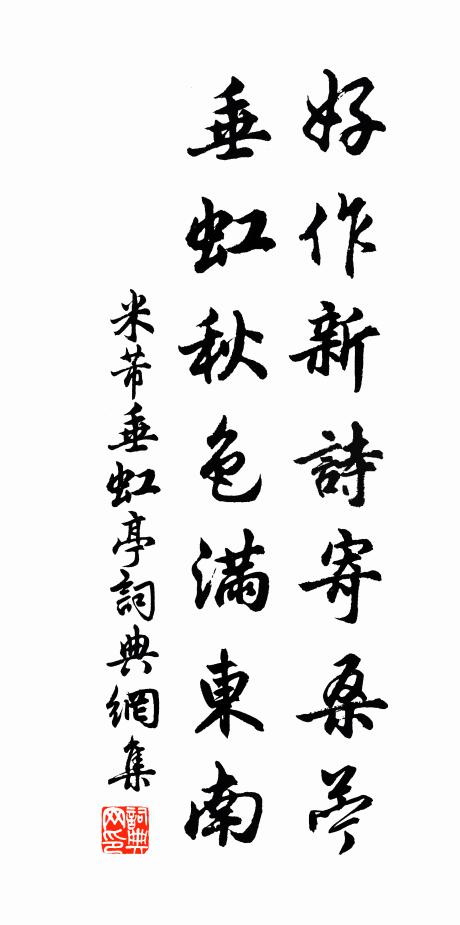 好作新詩寄桑苧
垂虹秋色滿東南
米芾垂虹亭詞典網集
詞典网印